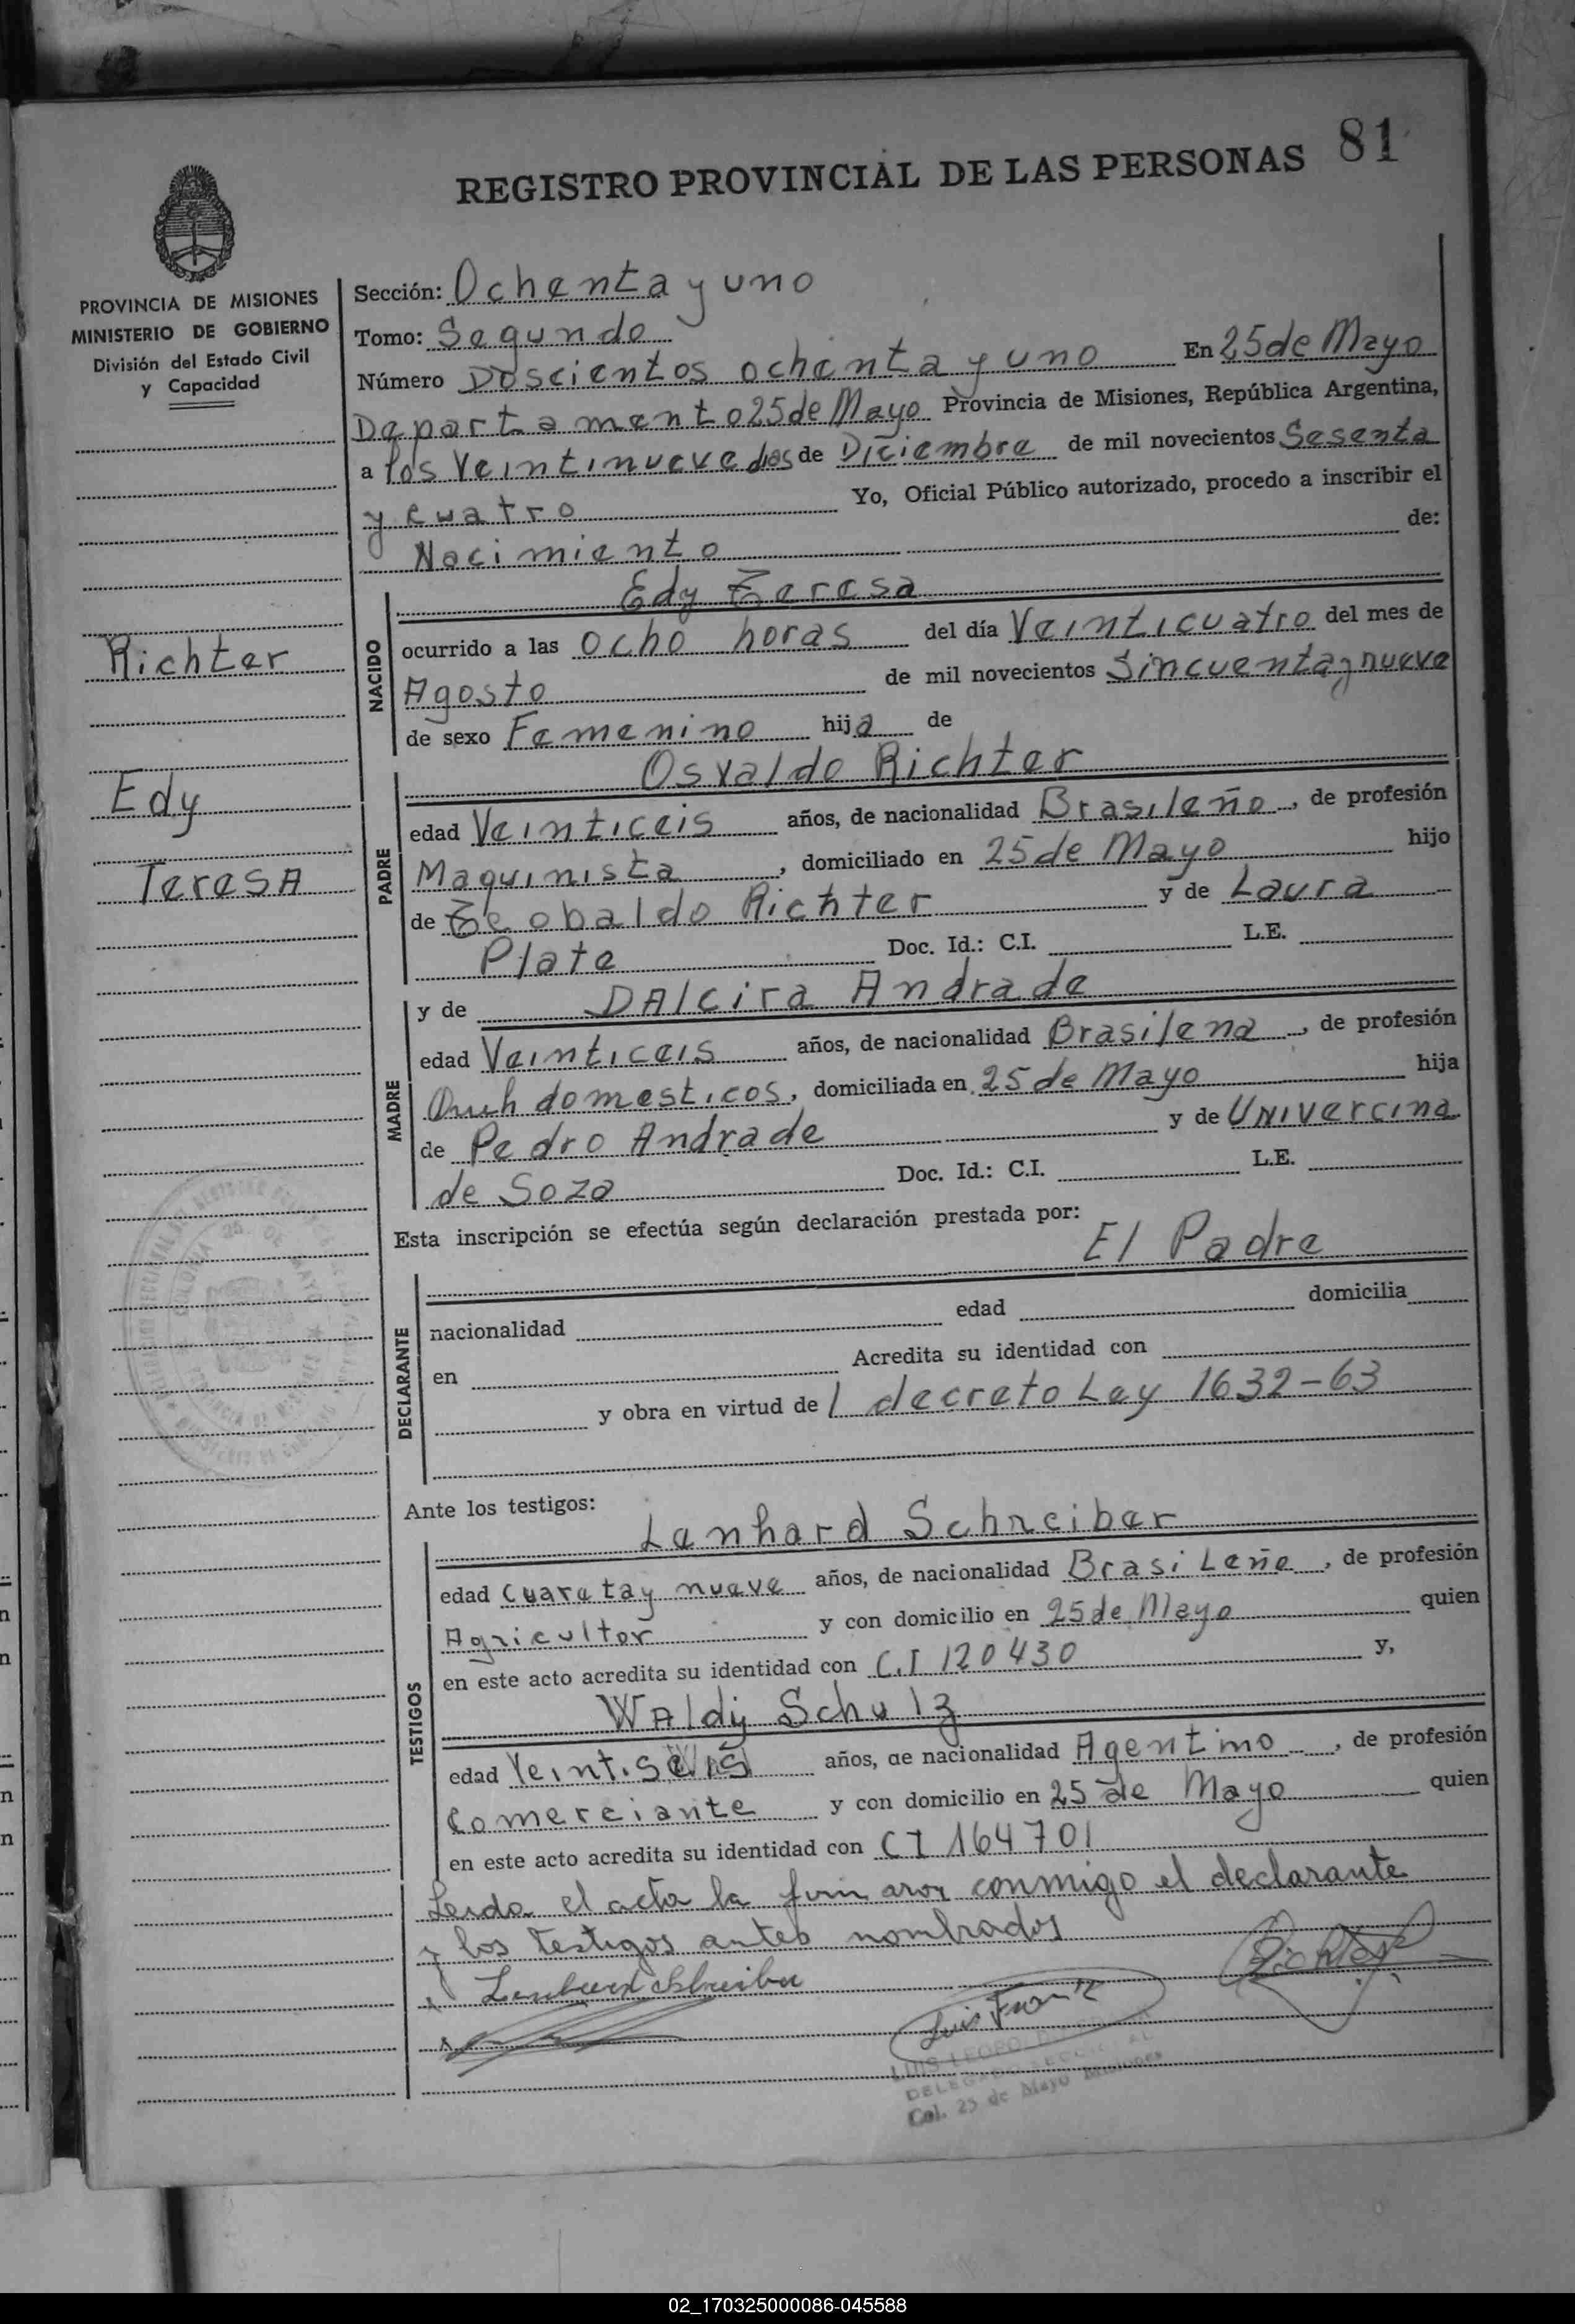 81
REGISTRO PROVINCIAL DE LAS PERSONAS
PROVINCIA DE MISIONES
MINISTERIO DE GOBIERNO
División del Estado Civil
y Capacidad
Richter
Edy
TeresA
Sección: Ochenta y uno
Tomo: Segundo
Número Doscientos ochenta y uno En 25 de Mayo
Departamento 25 de Mayo Provincia de Misiones, República Argentina,
a los Veintinueve dias de Diciembre de mil novecientos Sesenta
y cuatro Yo, Oficial Público autorizado, procedo a inscribir el
Nacimiento de:
NACIDO
Edy Teresa
ocurrido a las ocho horas del día Veinticuatro del mes de
Agosto de mil novecientos Sincuenta y nueve
de sexo Femenino hija de
PADRE
Osvaldo Richter
edad Veinticeis años, de nacionalidad Brasileño, de profesión
Maquinista, domiciliado en 25 de Mayo hijo
de Teobaldo Richter y de Laura
Plate Doc. Id.: C.I. L.E.
MADRE
y de DAlcira Andrade
edad Veinticeis años, de nacionalidad Brasilena, de profesión
domesticos, domiciliada en 25 de Mayo hija
de Pedro Andrade y de Univercina
de Soza Doc. Id.: C.I. L.E.
Esta inscripción se efectúa según declaración prestada por:
El Padre
DECLARANTE
nacionalidad edad domicilia
en Acredita su identidad con
y obra en virtud de l decreto Ley 1632-63
Ante los testigos:
TESTIGOS
Lenhard Schreiber
edad cuaretay nueve años, de nacionalidad Brasileño, de profesión
Agricultor y con domicilio en 25 de Mayo quien
en este acto acredita su identidad con C.I 120430 y,
WAldy Schulz
edad Veintiseis años, de nacionalidad Agentino, de profesión
Comerciante y con domicilio en 25 de Mayo quien
en este acto acredita su identidad con CI 164701
Leida el acta la firmaron conmigo el declarante
y los testigos antes nombrados
Lenhard Schreiber
Richter
Luis Frantz
Col. 25 de Mayo Misiones
02_170325000086-045588